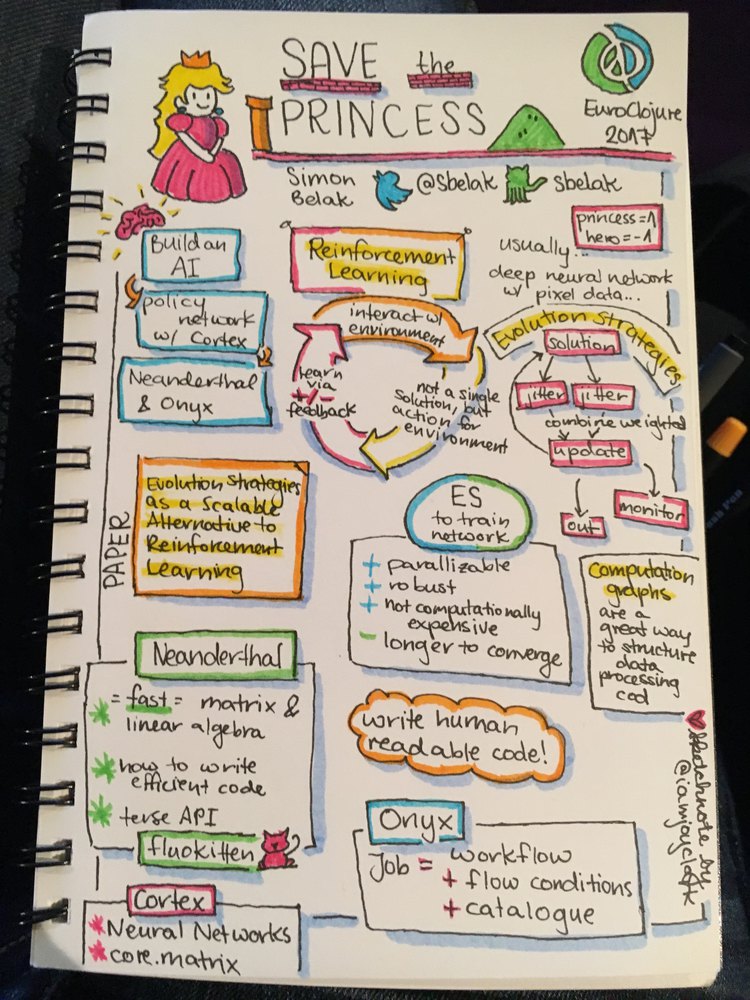 SAVE the
PRINCESS
EuroClojure
2017
Simon
Belak
@sbelak
sbelak
princess=1
hero=-1
Build an
AI
policy
network
w/ Cortex
Neanderthal
& Onyx
Reinforcement
Learning
interact w/
environment
not a single
solution, but
action for
environment
learn
via
+/-
feedback
usually...
deep neural network
w/ pixel data...
Evolution Strategies
solution
jitter jitter
combine weighted
update
out
monitor
PAPER
Evolution Strategies
as a Scalable
Alternative to
Reinforcement
Learning
ES
to train
network
+ parallizable
+ robust
+ not computationally
expensive
- longer to converge
Computation
graphs
are a
great way
to structure
data
processing
cod
Neanderthal
* = fast = matrix &
linear algebra
* how to write
efficient code
* terse API
fluokitten
write human
readable code!
Onyx
Job = workflow
+ flow conditions
+ catalogue
Cortex
* Neural Networks
* core.matrix
sketchnote by
@iamjoyclark